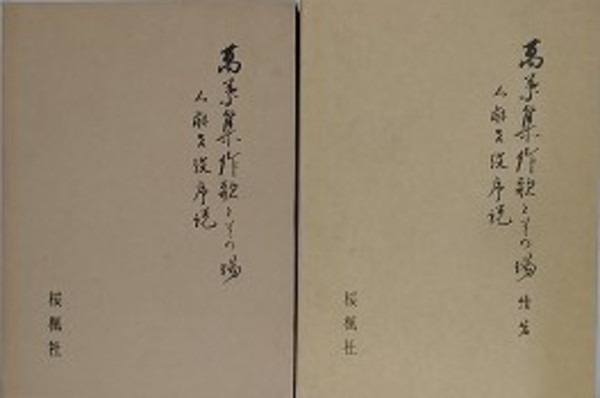 萬葉集作歌とその場
人麻呂攷序説
桜楓社
萬葉集作歌とその場
人麻呂攷序説
桜楓社